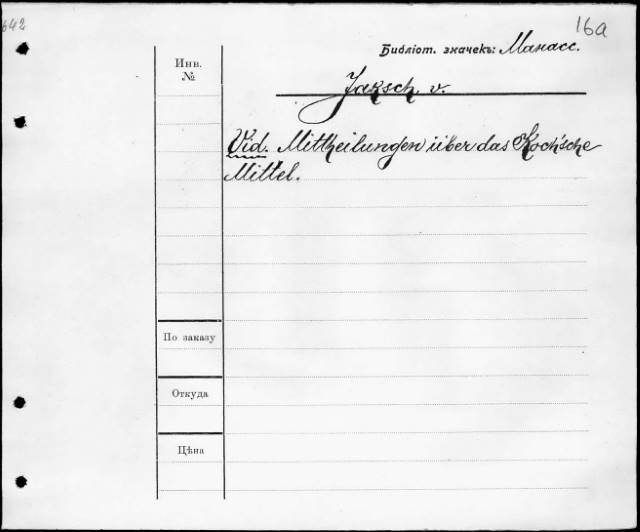 642
16а
Библіот. значекъ: Манасс.
Инв.
№
Jaksch, v.
Vid. Mittheilungen über das Koch'sche
Mittel.
По заказу
Откуда
Цѣна